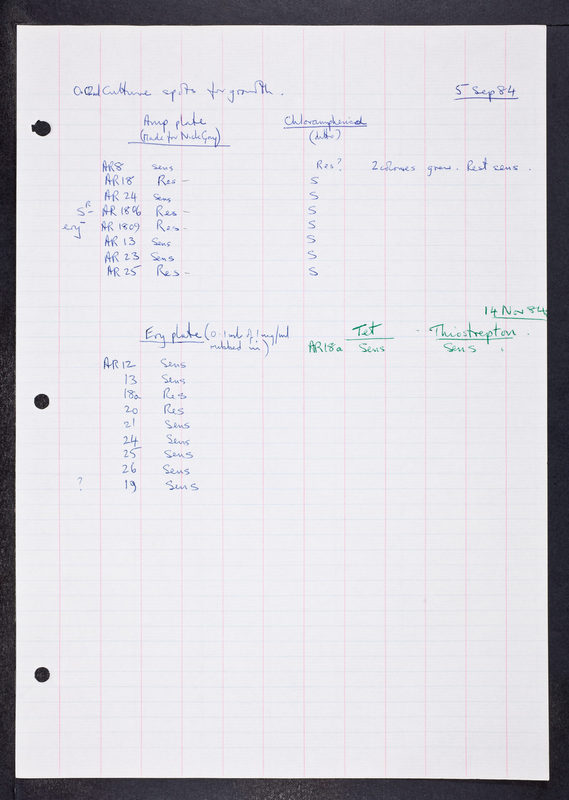 Culture spots for growth. 5 Sep 84
Amp plate Chloramphenicol
(Made for Nick Gay) (ditto)
AR8 Sens Res? 2 colonies grew. Rest sens.
AR18 Res - S
AR 24 Sens S
S R - AR 1806 Res - S
ery - AR 1809 Res - S
AR 13 Sens S
AR 23 Sens S
AR 25 Res - S
14 Nov 84
Ery plate (0.1 ml of 1 mg/ml rubbed in) Tet Thiostrepton.
AR18a Sens Sens.
AR12 Sens
13 Sens
18a Res
20 Res
21 Sens
24 Sens
25 Sens
26 Sens
? 19 Sens